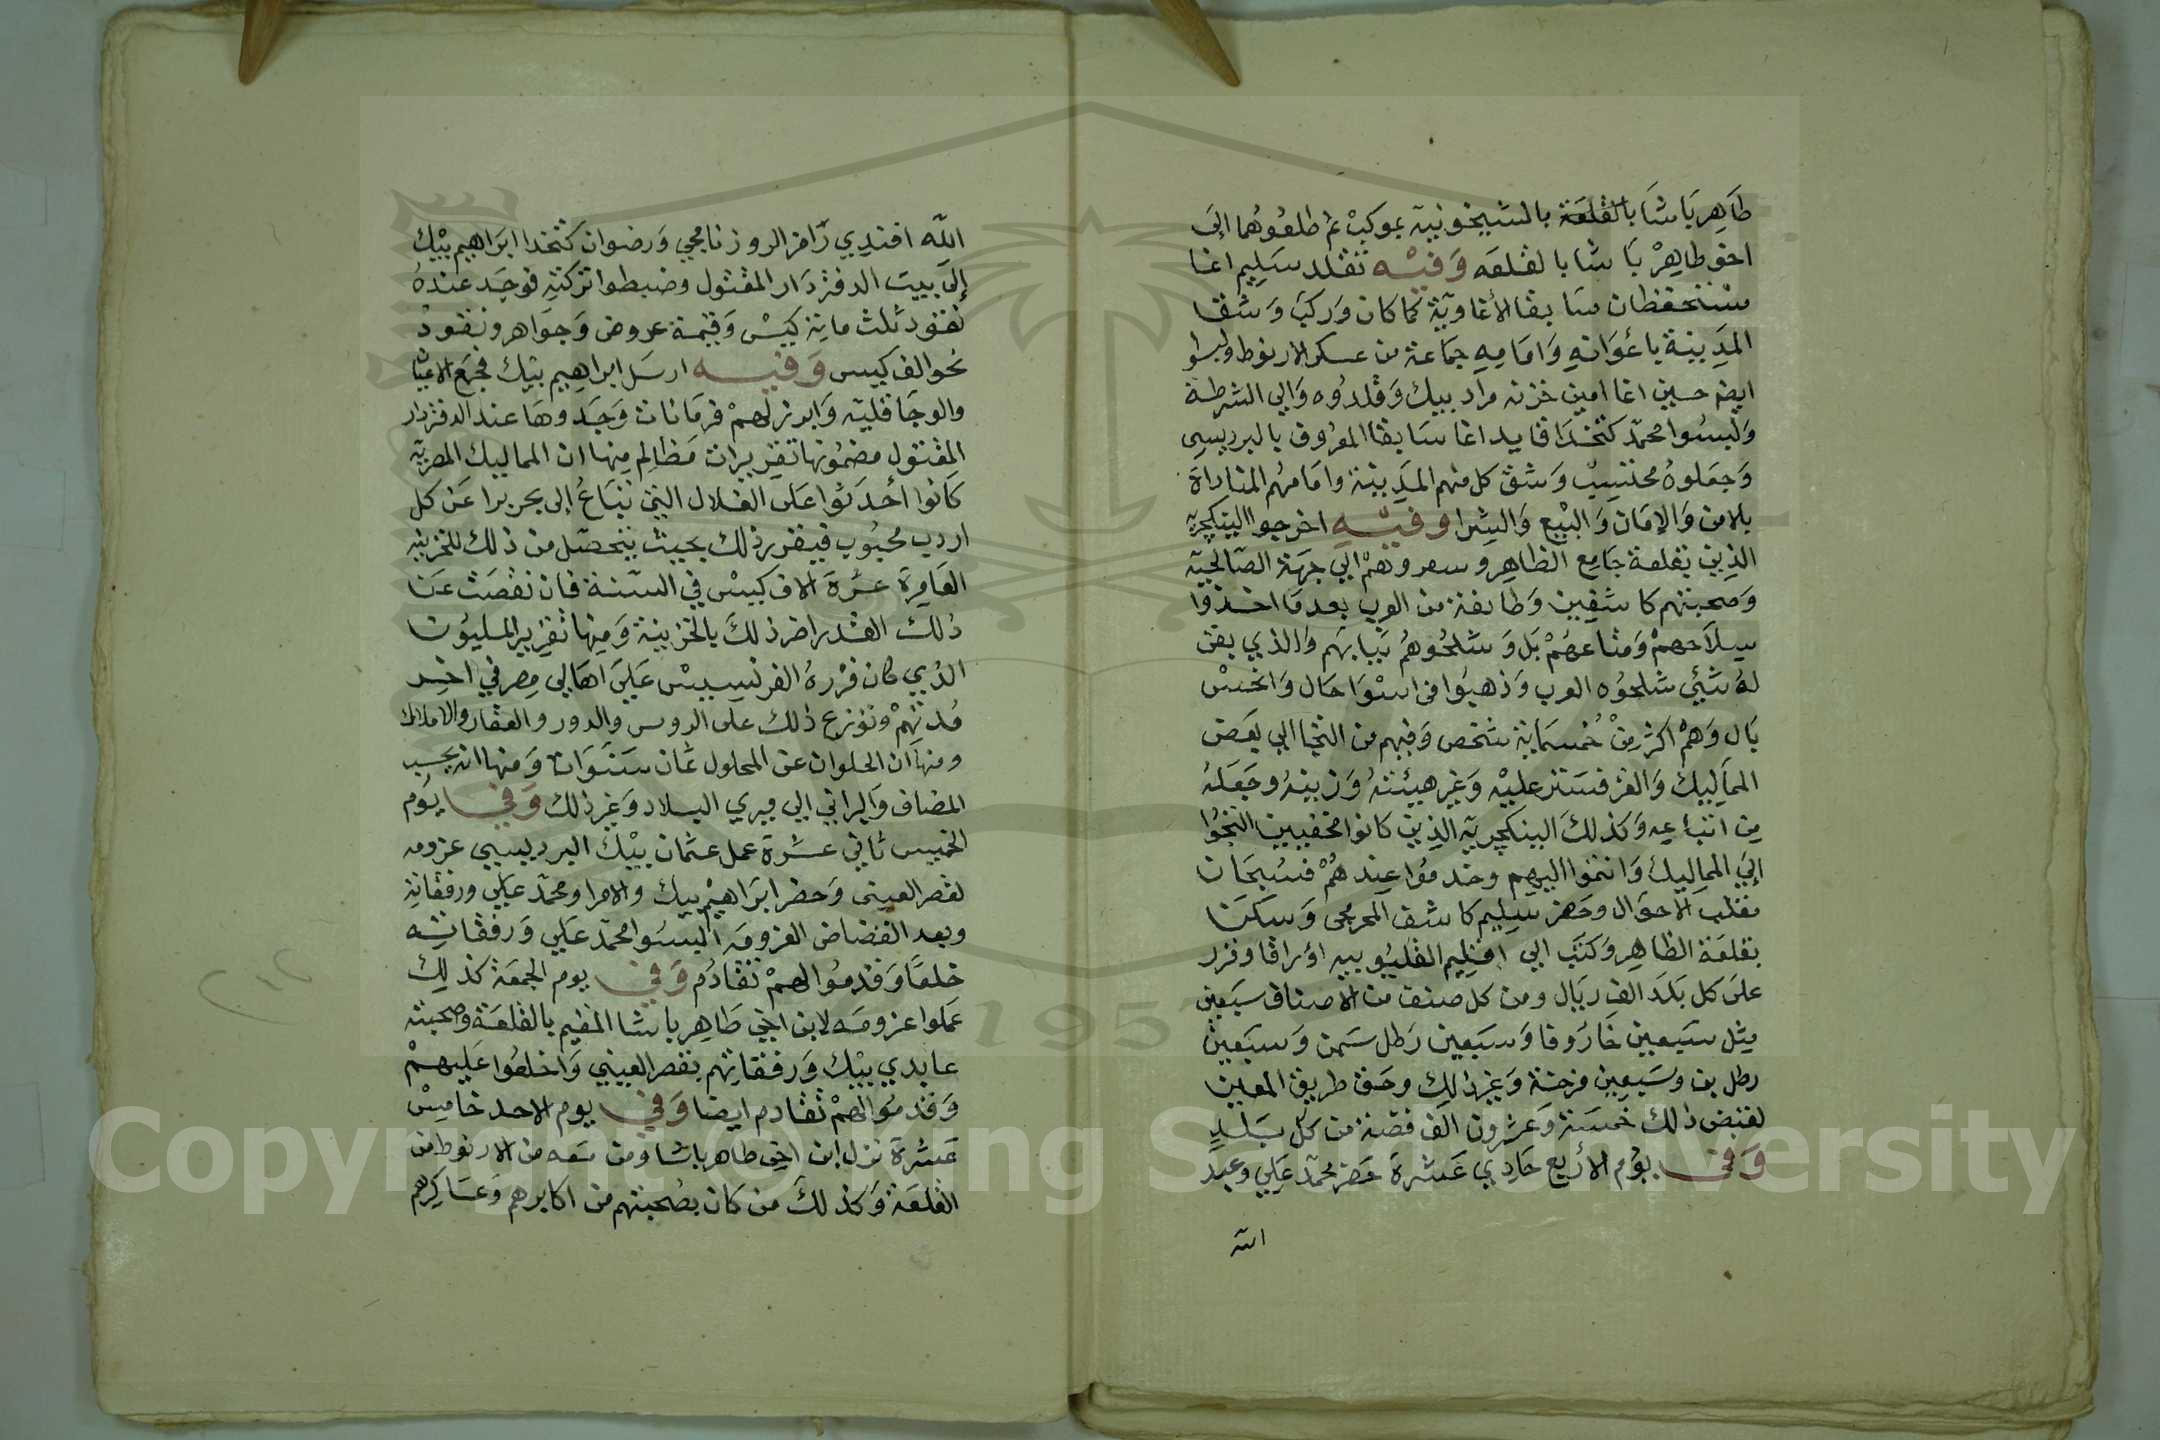 طاهر باشا بالقلعة بالشيخونية بموكب ثم طلعوهما إلى
اخو طاهر باشا بالقلعه وفيه تقلد سليم اغا
مستحفظان سابقا الأغاوية كما كان وركب وشق
المدينة باعوانه وامامه جماعة من عسكر الارنوط ولبسوا
ايضا حسين اغا امين خزنه مراد بيك وقلدوه والي الشرطة
ولبسوا محمد كتخدا قايد اغا سابقا المعروف بالبرديسي
وجعلوه محتسب وشق كل منهم المدينة وامامهم المناداة
بلامن والامان والبيع والشرا وفيه اخرجوا الينكجريه
الذين بقلعة جامع الظاهر وسفروهم الي جهة الصالحية
وصحبتهم كاشفين وطايفة من العرب بعدما اخذوا
سلاحهم ومتاعهم بل وشلحوهم ثيابهم والذي بقى
له شئي شلحوه العرب وذهبوا فى اسوا حال وانحس
بال وهم اكثر من خمسماية شخص وفيهم من التجا الي بعض
المماليك والغز فستر عليه وغير هيئته وزينه وجعله
من اتباعه وكذلك الينكچريه الذين كانوا مخفيين التجوا
إلي المماليك وانتموا اليهم وخدموا عندهم فسبحان
مقلب الاحوال وحضر سليم كاشف المحرمجى وسكن
بقلعة الظاهر وكتب الي اقليم القليوبيه اوراقا وقرر
على كل بلد الف ريال ومن كل صنف من الاصناف سبعين
مثل سبعين خاروفا وسبعين رطل سمن وسبعين
رطل بن وسبعين فرخة وغير ذلك وحق طريق المعين
لقبض ذلك خمسة وعشرون الف فضة من كل بلد
وفي يوم الأربع حادي عشرة حضر محمد علي وعبد
الله
الله افندي رامز الروزنامجي ورضوان كتخدا ابراهيم بيك
إلى بيت الدفتردار المقتول وضبطوا تركته فوجد عنده
نقود ثلث ماية كيس وقيمة عروض وجواهر ونقود
نحو الف كيس وفيه ارسل ابراهيم بيك فجمع الاعيان
والوجاقليه وابرز لهم فرمانات وجدوها عند الدفتردار
المقتول مضمونها تقريرات مظالم منها ان المماليك المصرية
كانوا أحدثوا على الغلال التي تباع إلى بحر برا عن كل
اردب محبوب فيقرر ذلك بحيث يتحصل من ذلك للخزينه
العامرة عشرة الاف كيس في السنة فان نقصت عن
ذلك القدر اضر ذلك بالخزينة ومنها تقرير المليون
الذي كان قرره الفرنسيس على اهالي مصر في اخر
مدتهم وتوزع ذلك على الروس والدور والعقار والاملاك
ومنها ان الحلوان عن المحلول ثمان سنوات ومنها انه يحسب
المضاف والبراني الي ميري البلاد وغير ذلك وفي يوم
الخميس ثاني عشرة عمل عثمان بيك البرديسي عزومه
لقصر العينى وحضر ابراهيم بيك والامرا ومحمد علي ورفقاته
وبعد انفضاض العزومة البسوا محمد علي ورفقاته
خلعا وقدموا لهم تقادم وفي يوم الجمعة كذلك
عملوا عزومه لابن اخي طاهر باشا المقيم بالقلعة وصحبته
عابدي بيك ورفقاتهم بقصر العيني واخلعوا عليهم
وقدموا لهم تقادم ايضا وفي يوم الاحد خامس
عشرة نزل ابن اخي طاهر باشا ومن معه من الارنوط من
القلعة وكذلك من كان بصحبتهم من اكابرهم وعساكرهم
Copyright © King Saud University
1957